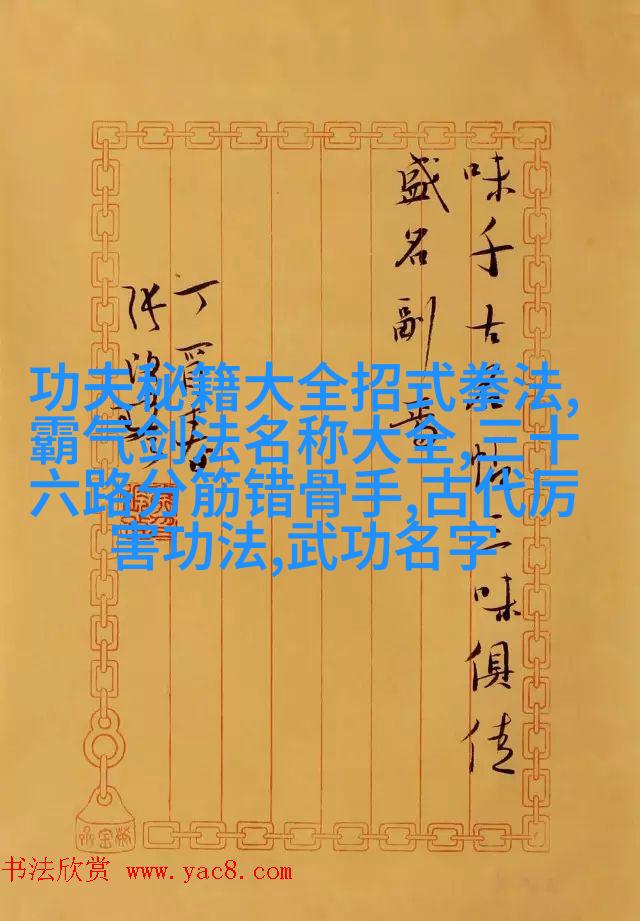 味千古三味俱佳
盛名副
丁酉春
张
功夫秘籍大全招式拳法,
霸气剑法名称大全,三十
六路分筋错骨手,古代厉
害功法,武功名字
书法欣赏 www.yac8.com